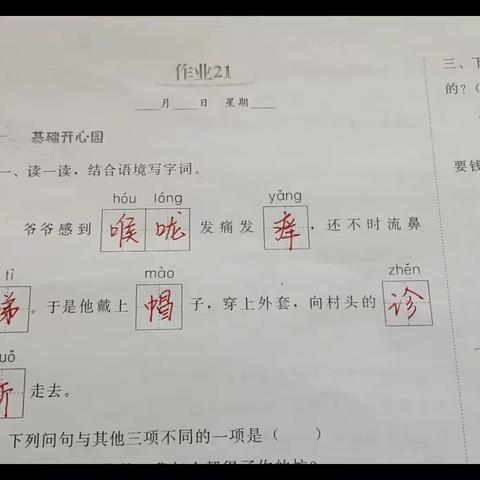 作业21
三、下
____月____日 星期____
的?（
一 基础开心园
一、读一读，结合语境写字词。
要钱
hóu lóng yǎng
爷爷感到喉咙发痛发痒，还不时流鼻
tì mào zhěn
涕。于是他戴上帽子，穿上外套，向村头的诊
uǒ
所走去。
下列问句与其他三项不同的一项是（ ）